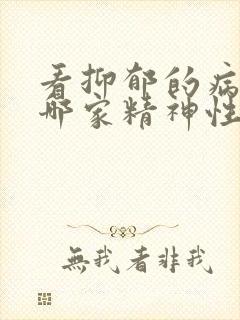 看抑郁的病
哪家精神性
無我者非我